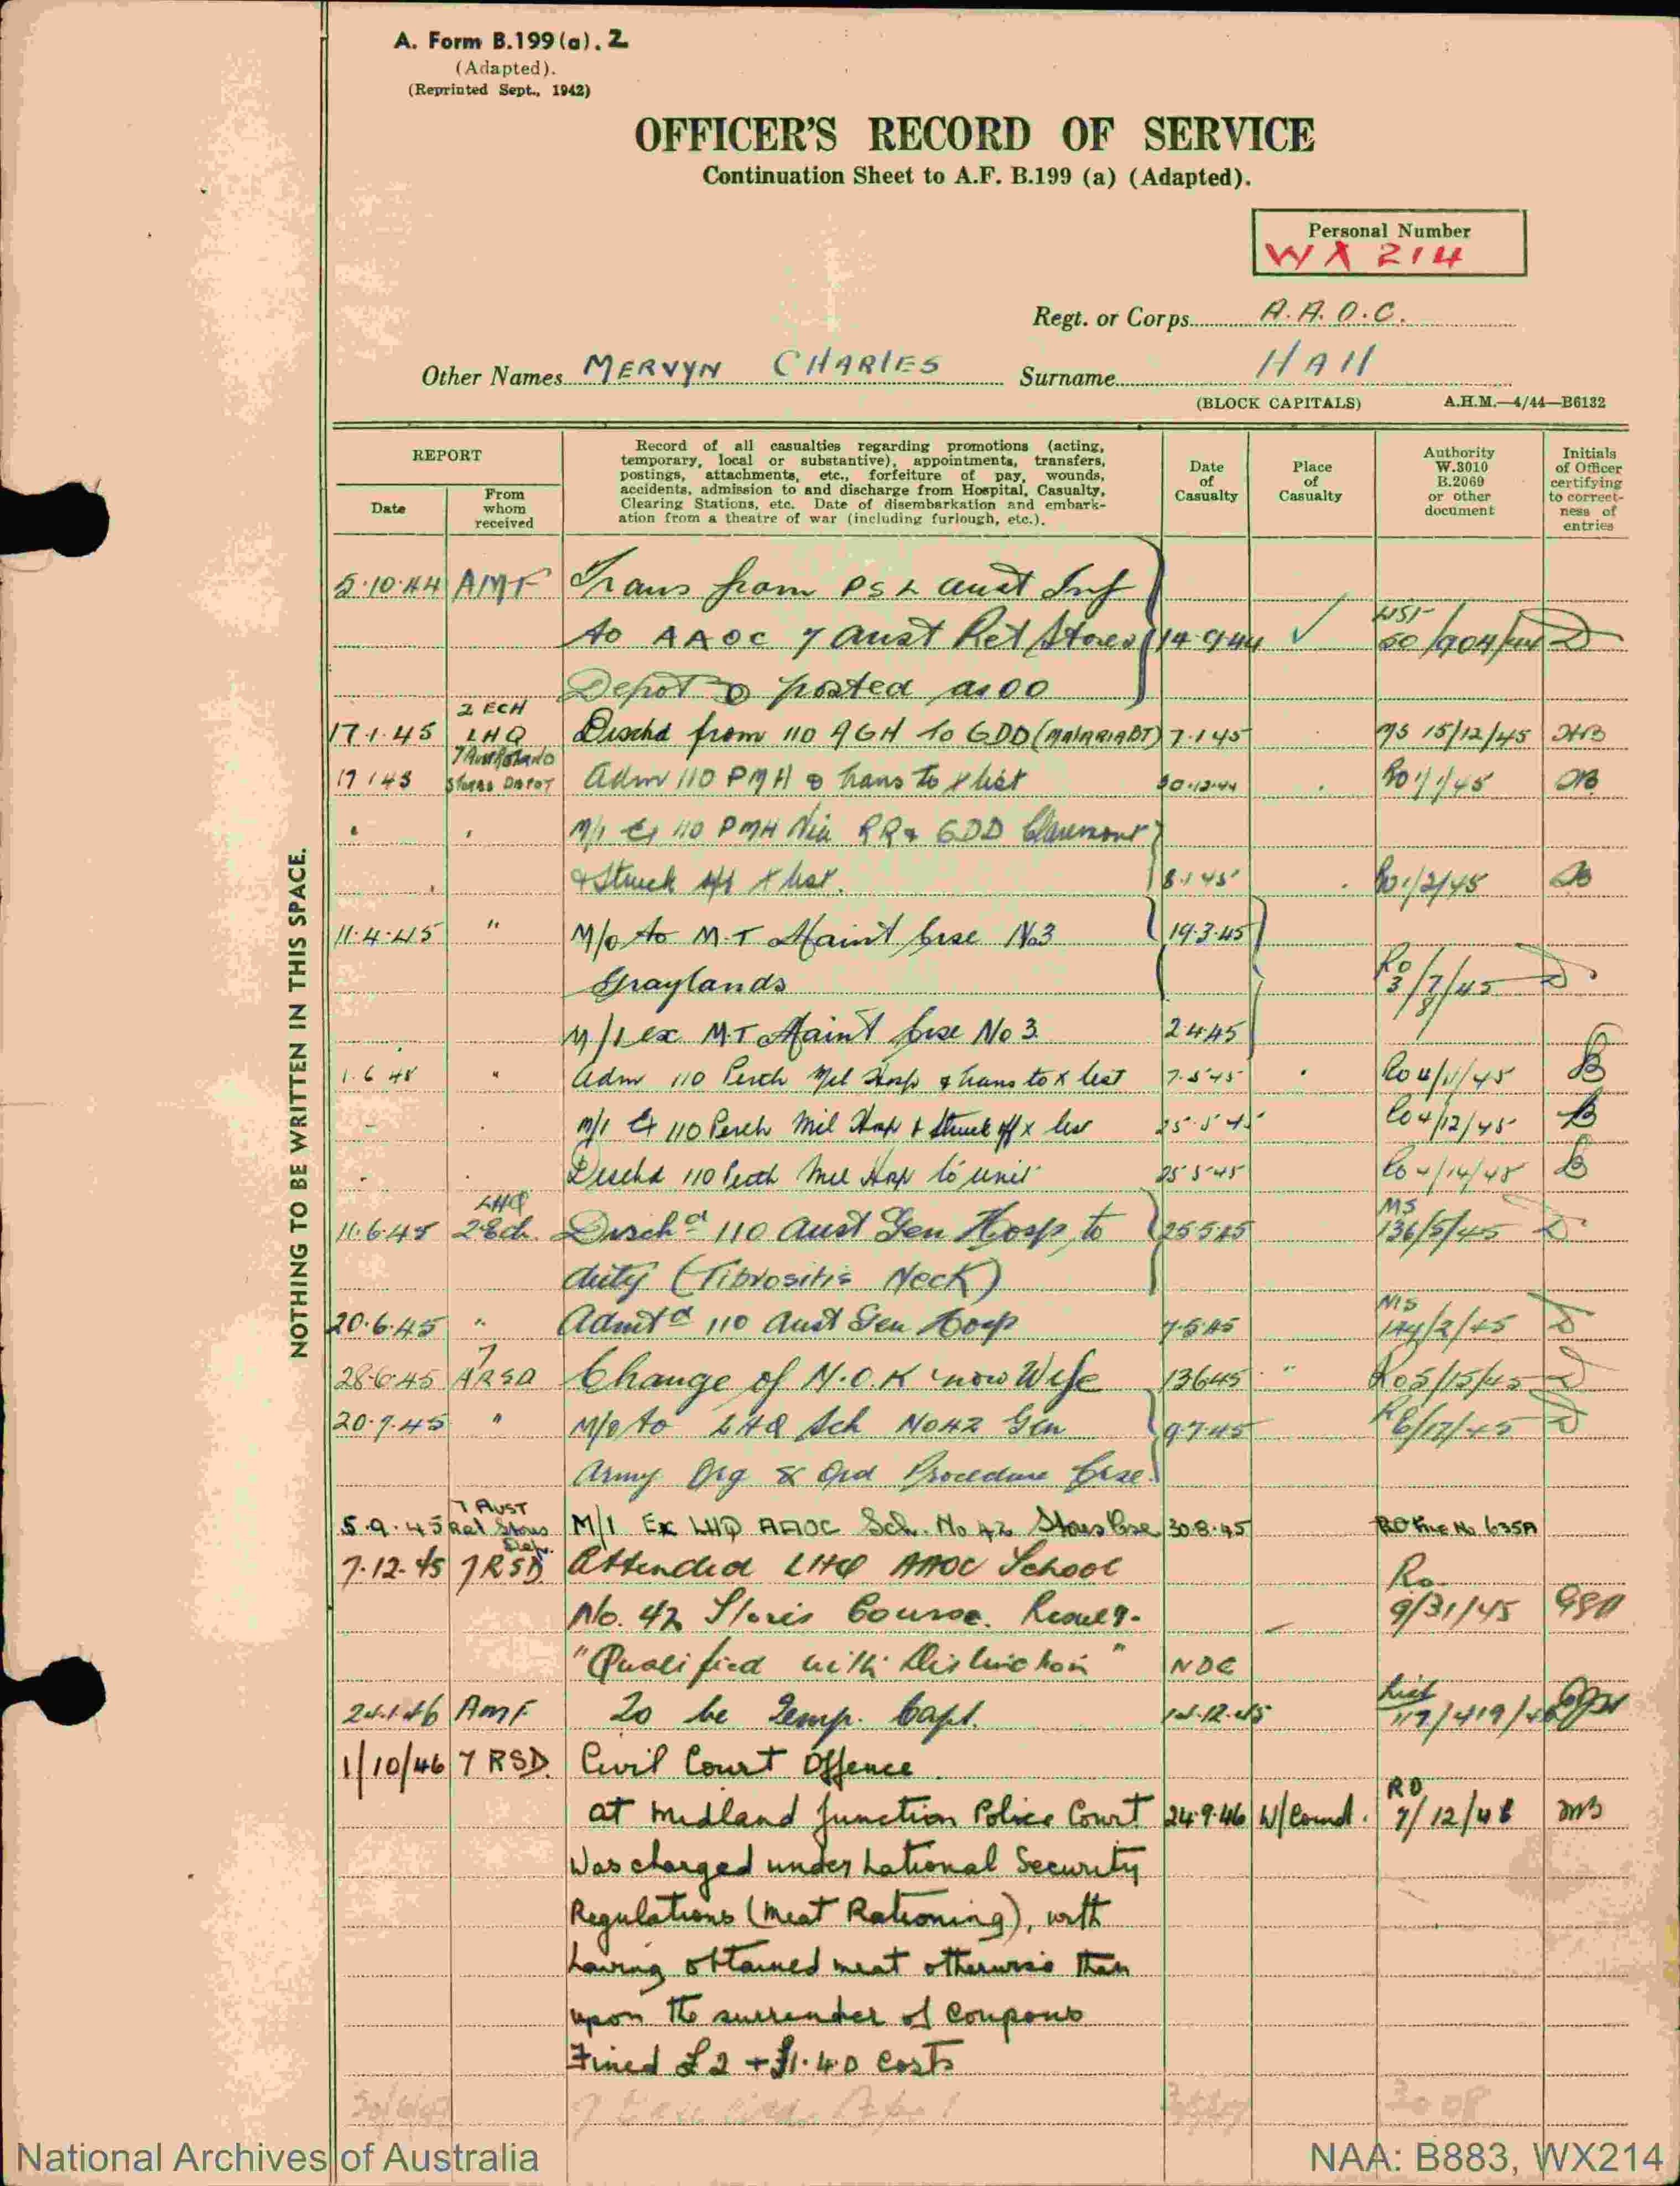 A. Form B.199(a). 2
(Adapted).
(Reprinted Sept., 1942)
OFFICER'S RECORD OF SERVICE
Continuation Sheet to A.F. B.199 (a) (Adapted).
Personal Number
WX 214
Regt. or Corps A.A.O.C.
Other Names MERVYN CHARLES Surname HALL
(BLOCK CAPITALS) A.H.M.—4/44—B6132
NOTHING TO BE WRITTEN IN THIS SPACE.
REPORT
Date
From whom received
Record of all casualties regarding promotions (acting,
temporary, local or substantive), appointments, transfers,
postings, attachments, etc., forfeiture of pay, wounds,
accidents, admission to and discharge from Hospital, Casualty,
Clearing Stations, etc. Date of disembarkation and embark-
ation from a theatre of war (including furlough, etc.).
Date of Casualty
Place of Casualty
Authority W.3010 B.2069 or other document
Initials of Officer certifying to correct-ness of entries
5.10.44 AMF Trans from PSL Aust Inf
to AAOC 7 Aust Ret Stores 14.9.44
Depot & posted as OO
2 ECH
17.1.45 LHQ Dischd from 110 AGH to GDD (MALARIA BT) 7.1.45 MS 15/12/45
Stores Depot Adm 110 PMH & trans to X list 30.12.44 RO 1/1/45
M/I Ex 110 PMH via RR & GDD Claremont
& Struck off X list. 8.1.45 RO 1/2/45
11.4.45 " M/O to M.T Maint Crse No3 19.3.45
Graylands RO 3/7/45
M/I ex M.T Maint Crse No 3 2.4.45
1.6.45 " Adm 110 Perth Mil Hosp & trans to X list 7.5.45 RO 4/11/45
M/I Ex 110 Perth Mil Hosp & Struck off X list 25.5.45 RO 4/12/45
Dischd 110 Perth Mil Hosp to unit 25.5.45 RO 4/14/45
LHQ MS
11.6.45 2 Ech. Disch d 110 Aust Gen Hosp to 25.5.45 136/5/45
duty (Fibrositis Neck)
MS
20.6.45 " Admt d 110 Aust Gen Hosp 7.5.45 144/2/45
7
28.6.45 ARSD Change of N.O.K now Wife 13.6.45 " RO 5/15/45
20.7.45 " M/O to LHQ Sch No 42 Gen 9.7.45 6/17/45
Army Org & Ord Procedure Crse.
7 Aust
5.9.45 Ret Stores Dep. M/I Ex LHQ AAOC Sch. No 42 Stores Crse 30.8.45 RO File No. 635A
7.12.45 7RSD Attended LHQ AAOC School RO
No. 42 Stores Course. Result. 9/31/45
"Qualified with Distinction" NDG
24.1.46 AMF To be Temp. Capt. 117/419/46
1/10/46 7 RSD. Civil Court Offence
RO
at Midland Junction Police Court 24.9.46 W/Comd. 7/12/46
Was charged under National Security
Regulations (Meat Rationing), with
having obtained meat otherwise than
upon the surrender of coupons
Fined £2 + £1.4.0 costs
National Archives of Australia
NAA: B883, WX214